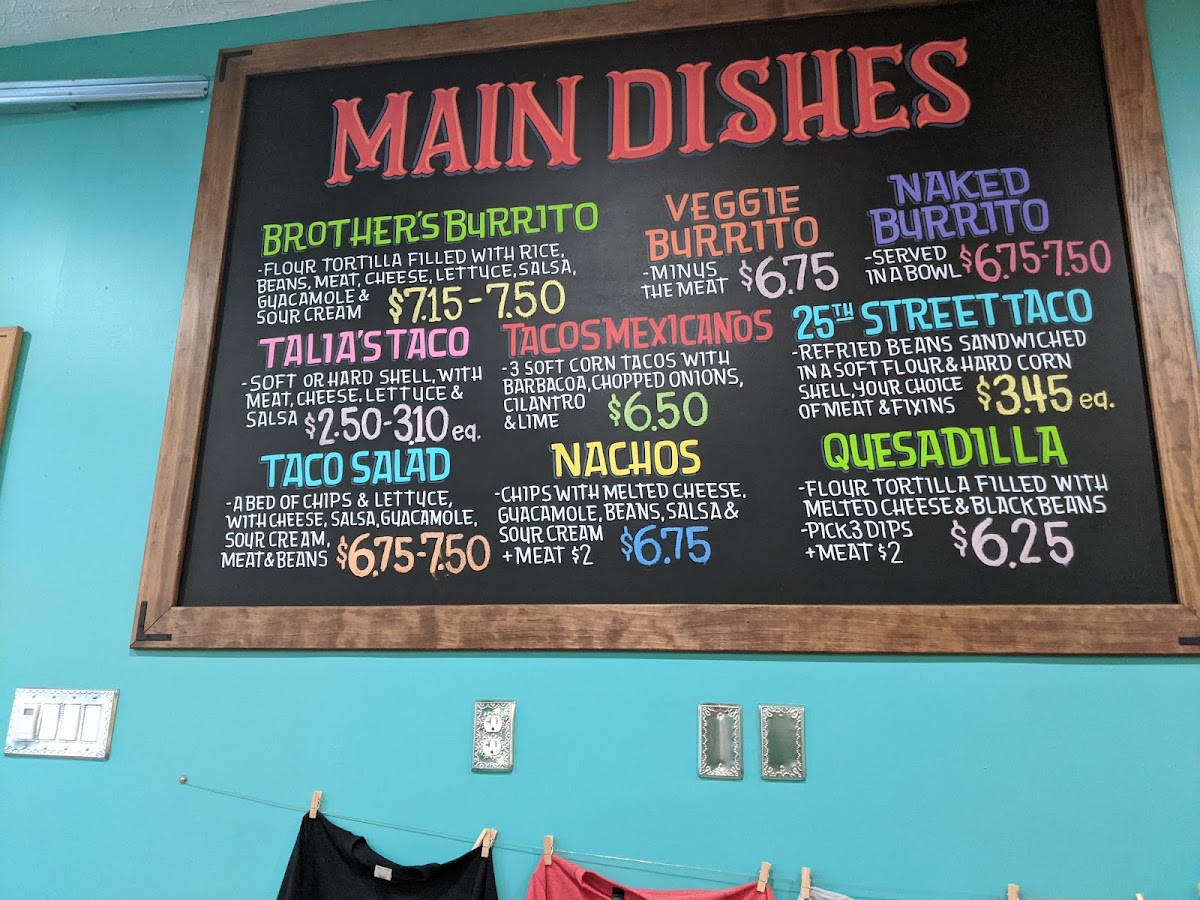 MAIN DISHES
BROTHER'S BURRITO
-FLOUR TORTILLA FILLED WITH RICE,
BEANS, MEAT, CHEESE, LETTUCE, SALSA,
GUACAMOLE &
SOUR CREAM $7.15-7.50
VEGGIE
BURRITO
-MINUS
THE MEAT $6.75
NAKED
BURRITO
-SERVED
IN A BOWL $6.75-7.50
TALIA'S TACO
-SOFT OR HARD SHELL, WITH
MEAT, CHEESE, LETTUCE &
SALSA $2.50-3.10 eq.
TACOS MEXICANOS
-3 SOFT CORN TACOS WITH
BARBACOA, CHOPPED ONIONS,
CILANTRO
& LIME $6.50
25TH STREET TACO
-REFRIED BEANS SANDWICHED
IN A SOFT FLOUR & HARD CORN
SHELL, YOUR CHOICE
OF MEAT & FIXINS $3.45 eq.
TACO SALAD
-A BED OF CHIPS & LETTUCE,
WITH CHEESE, SALSA, GUACAMOLE,
SOUR CREAM,
MEAT & BEANS $6.75-7.50
NACHOS
-CHIPS WITH MELTED CHEESE.
GUACAMOLE, BEANS, SALSA &
SOUR CREAM
+MEAT $2 $6.75
QUESADILLA
-FLOUR TORTILLA FILLED WITH
MELTED CHEESE & BLACK BEANS
-PICK 3 DIPS
+MEAT $2 $6.25